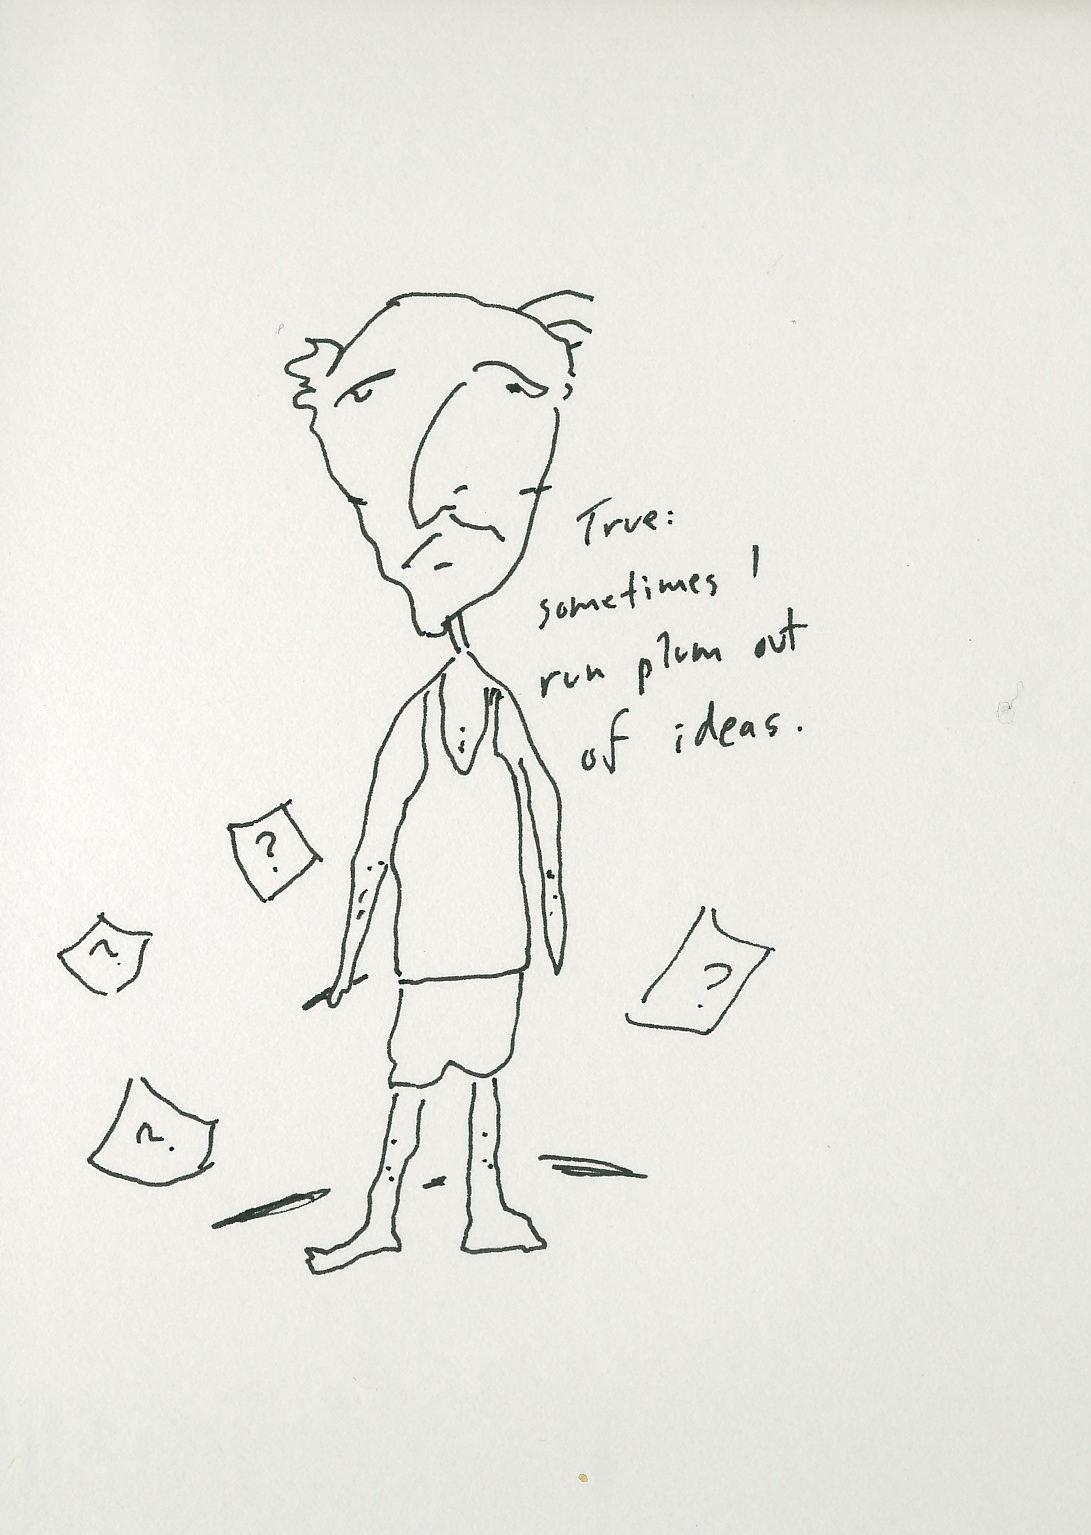 True:
sometimes I
run plum out
of ideas.
?
?
?
?